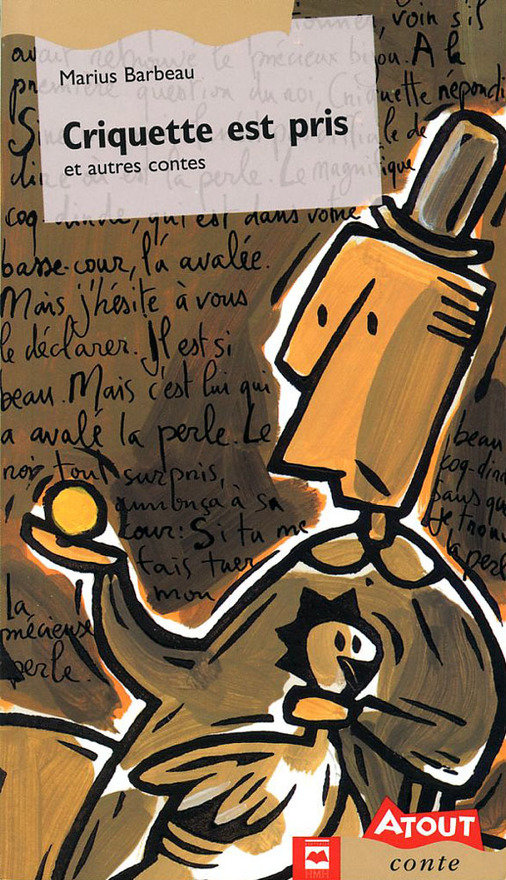 voin s'il
Marius Barbeau
Criquette est pris
et autres contes
avait le précieux bijou. A la
première question du roi, Criquette répondi
de
dire où la perle. Le magnifique
coq dinde, qui est dans votre
basse-cour, l'a avalée.
Mais j'hésite à vous
le déclarer. Il est si
beau. Mais c'est lui qui
a avalé la perle. Le
roi tout surpris,
annonça à sa
cour: Si tu me
fais tuer
mon
beau
coq-dind
sans que
je trouv
la perl
La
précieuse
perle.
HMH
ATOUT
conte